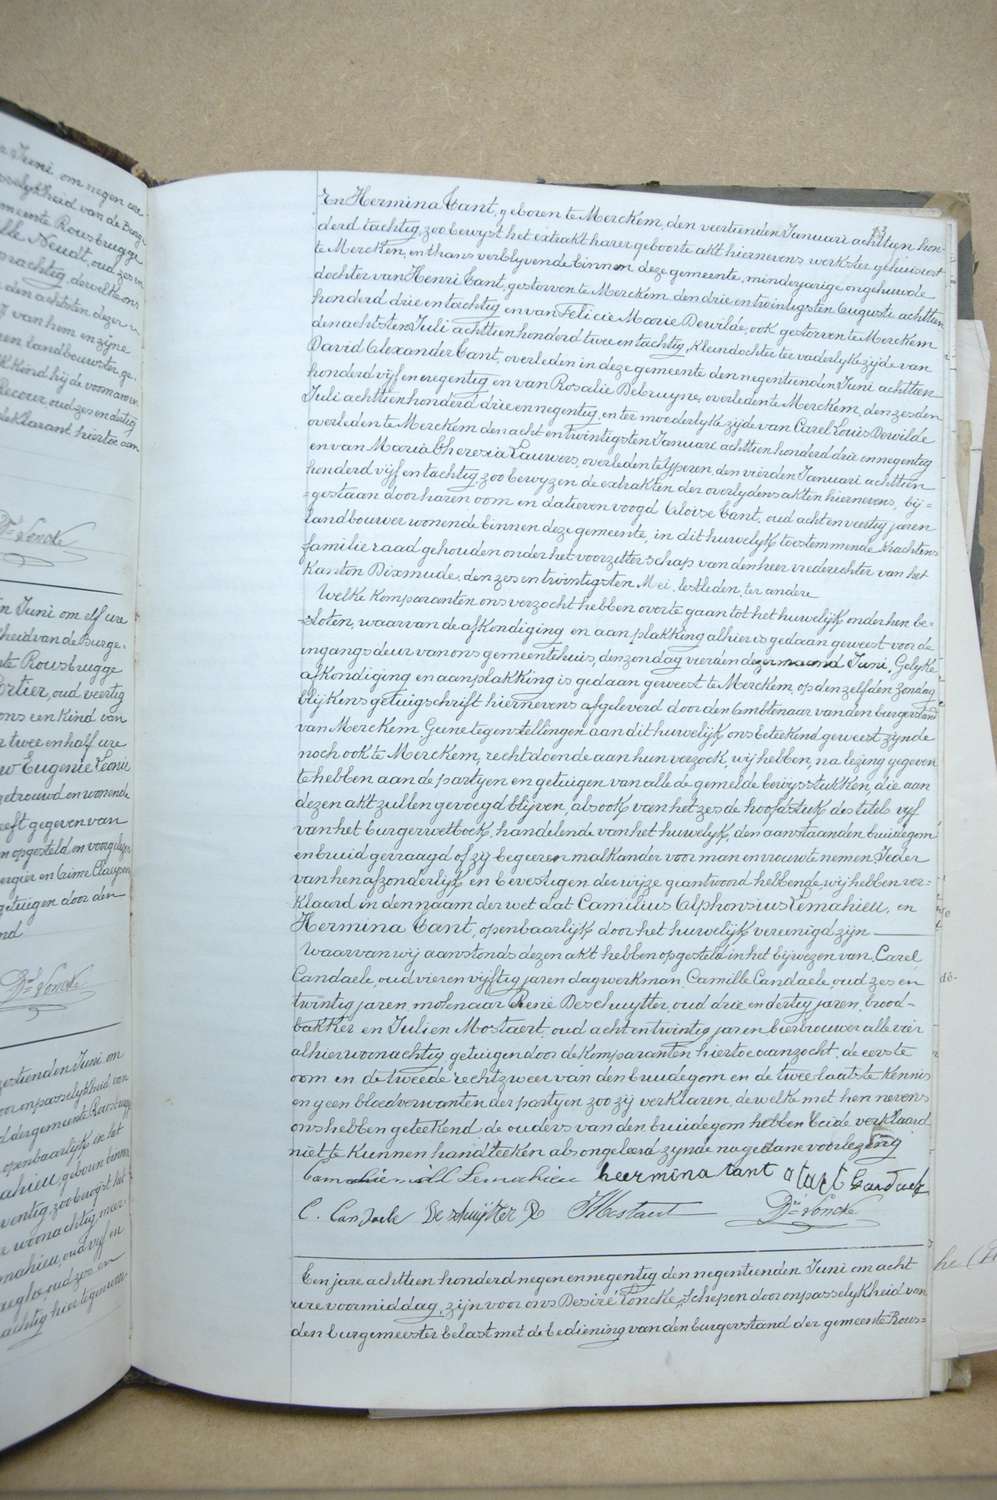 13
En Hermina Tant, geboren te Merckem, den veertienden Januari achttien hon-
derd tachtig, zoo bewyst het extrakt harer geboorte akt hiernevens, werkster gehuisvest
te Merckem, en thans verblyvende binnen deze gemeente, minderjarige ongehuwde
dochter van Henri Tant, gestorven te Merckem den drie en twintigsten Augusti achttien
honderd drie en tachtig en van Felicie Marie Dewilde, ook gestorven te Merckem
den achtsten Juli achttien honderd twee en tachtig, Kleindochter ter vaderlyke zyde van
David Alexander Tant, overleden in deze gemeente den negentienden Juni achttien
honderd vyf en negentig en van Rosalie Debruyne, overleden te Merckem, den zesden
Juli achttien honderd drie en negentig, en ter moederlyke zyde van Carel Louis Dewilde
overleden te Merckem den acht en twintigsten Januari achttien honderd drie en negentig
en van Maria Theresia Lauwers, overleden te Yperen, den vierden Januari achttien
honderd vyf en tachtig, zoo bewyzen de extrakten der overlydens akten hiernevens, bij=
=gestaan door haren oom en datieven voogd Aloise Tant, oud acht en veertig jaren
landbouwer wonende binnen deze gemeente, in dit huwelyk toestemmende krachtens
familieraad gehouden onder het voorzitterschap van den heer vrederechter van het
Kanton Dixmude, den zes en twintigsten Mei, lestleden, ter andere
Welke komparanten ons verzocht hebben over te gaan tot het huwelijk onder hen be=
=sloten, waarvan de afkondiging en aanplakking alhier is gedaan geweest voor de
ingangsdeur van ons gemeentehuis, den zondag vierden dezer maand Juni. Gelyke
afkondiging en aanplakking is gedaan geweest te Merckem, op den zelfden zondag
blijkens getuigschrift hiernevens afgeleverd door den Ambtenaar van den burgerstand
van Merckem. Geene tegenstellingen aan dit huwelijk ons beteekend geweest zynde
noch ook te Merckem, rechtdoende aan hun verzoek, wij hebben, na lezing gegeven
te hebben aan de partyen en getuigen van alle de gemelde bewysstukken, die aan
dezen akt zullen gevoegd blijven alsook van het zesde hoofdstuk des titels vyf
van het burgerwetboek, handelende van het huwelyk, den aanstaanden bruidegom
en bruid gevraagd of zy begeeren malkander voor man en vrouw te nemen. Ieder
van hen afzonderlijk en bevestigender wijze geantwoord hebbende, wij hebben ver-
klaard in den naam der wet dat Camilius Alphonsius Lemahieu, en
Hermina Tant, openbaarlijk door het huwelijk vereenigd zijn
Waarvan wij aanstonds dezen akt hebben opgesteld in het bijwezen van Carel
Candaele, oud vier en vijftig jaren dagwerkman, Camille Candaele, oud zes en
twintig jaren, molenaar, René Deschuytter, oud drie en dertig jaren, brood-
bakker en Julien Mostaert, oud acht en twintig jaren, bierbrouwer alle vier
alhier woonachtig, getuigen door de komparanten hiertoe aanzocht, de eerste
oom en de tweede rechtzweer van den bruidegom en de twee laatste kennis
en geen bloedverwanten der partyen zoo zij verklaren, dewelke met hen nevens
ons hebben geteekend de ouders van den bruidegom hebben beide verklaard
niet te kunnen handteeken als ongeleerd zynde na gedane voorlezing
Lemahieu heermina tant a tant Candaele
C. Candaele Deschuytter R JMostaert Dré Loncke
Een jare achttien honderd negen en negentig den negentienden Juni om acht
ure voormiddag, zijn voor ons Desiré Loncke, Schepen door onpasselykheid van
den burgemeester belast met de bediening van den burgerstand der gemeente Rous=